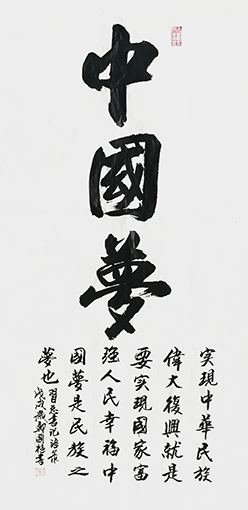 中國夢
实現中華民族
偉大復興就是
要实現國家富
强人民幸福中
國夢是民族之
夢也
戊戌